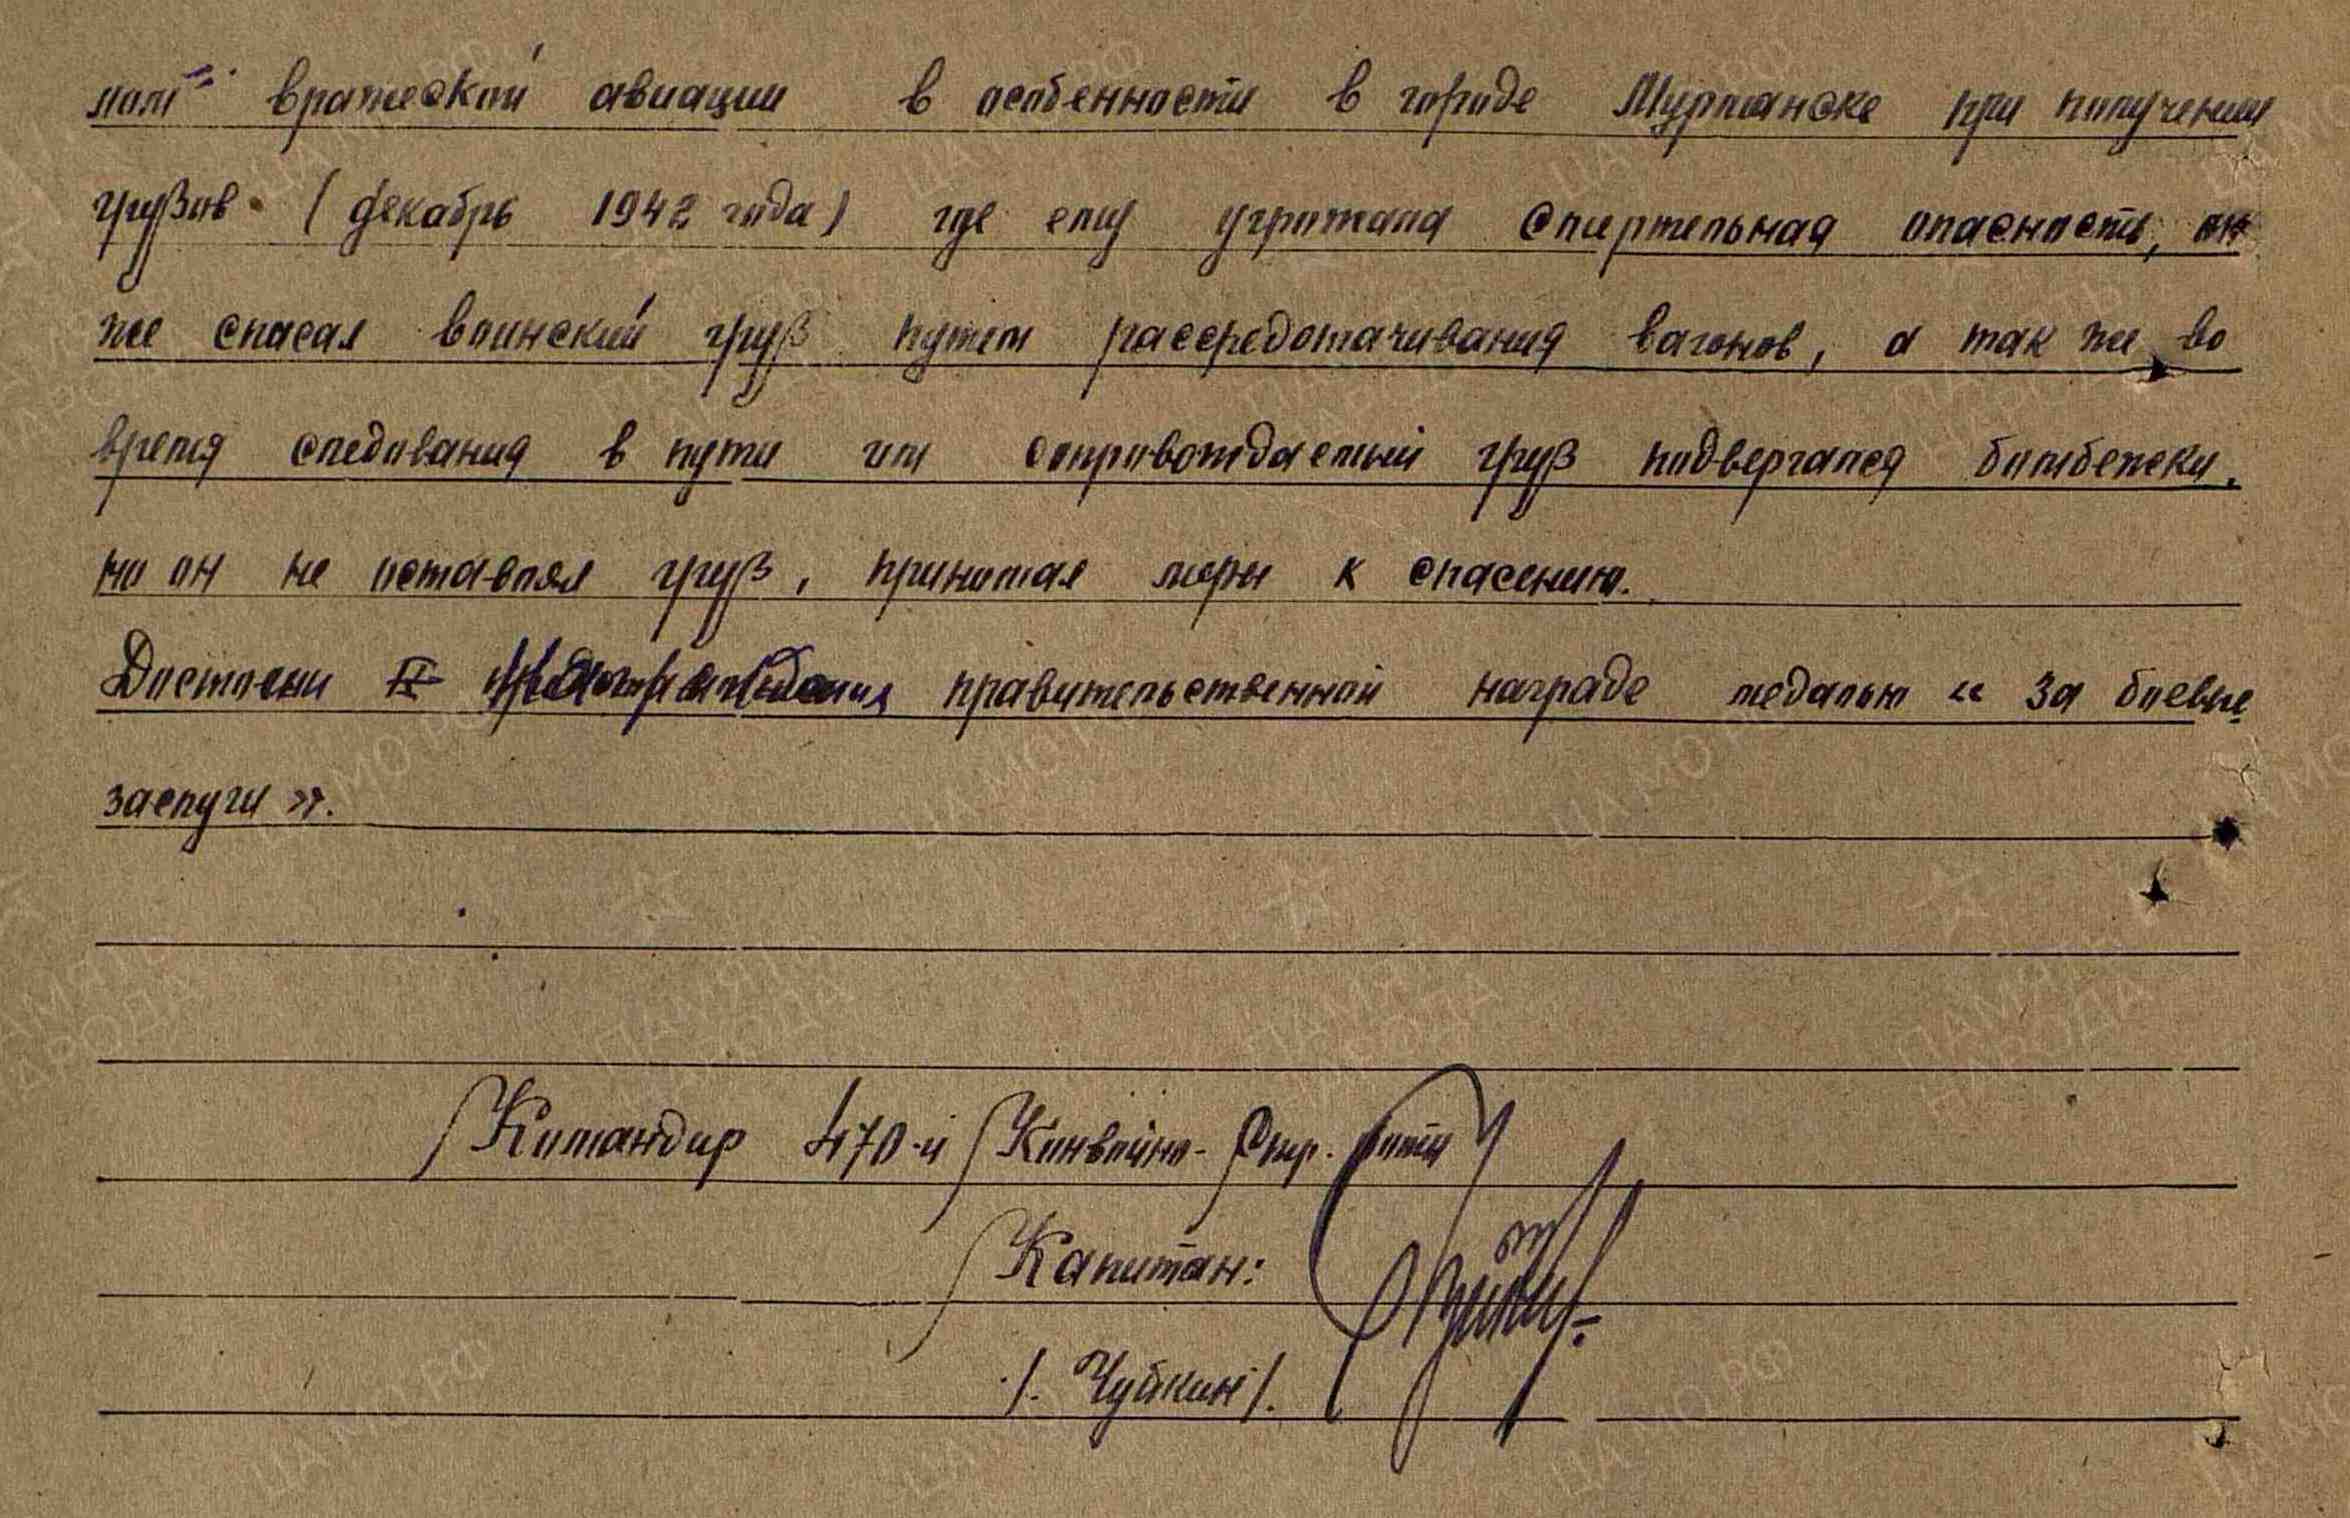 вражеской авиации в особенности в городе Мурманске при получении
грузов (декабрь 1942 года) где ему угрожала смертельная опасность, он
же спасал воинский груз путем рассредотачивания вагонов, а так же во
время следования в пути им сопровождаемый груз подвергался бомбежки,
но он не оставлял груз, принимая меры к спасению.
Достоин правительственной награде медалью « За боевые
заслуги ».
Командир 470-й Конвойно- роты
Капитан:
/. Чуйкин /.